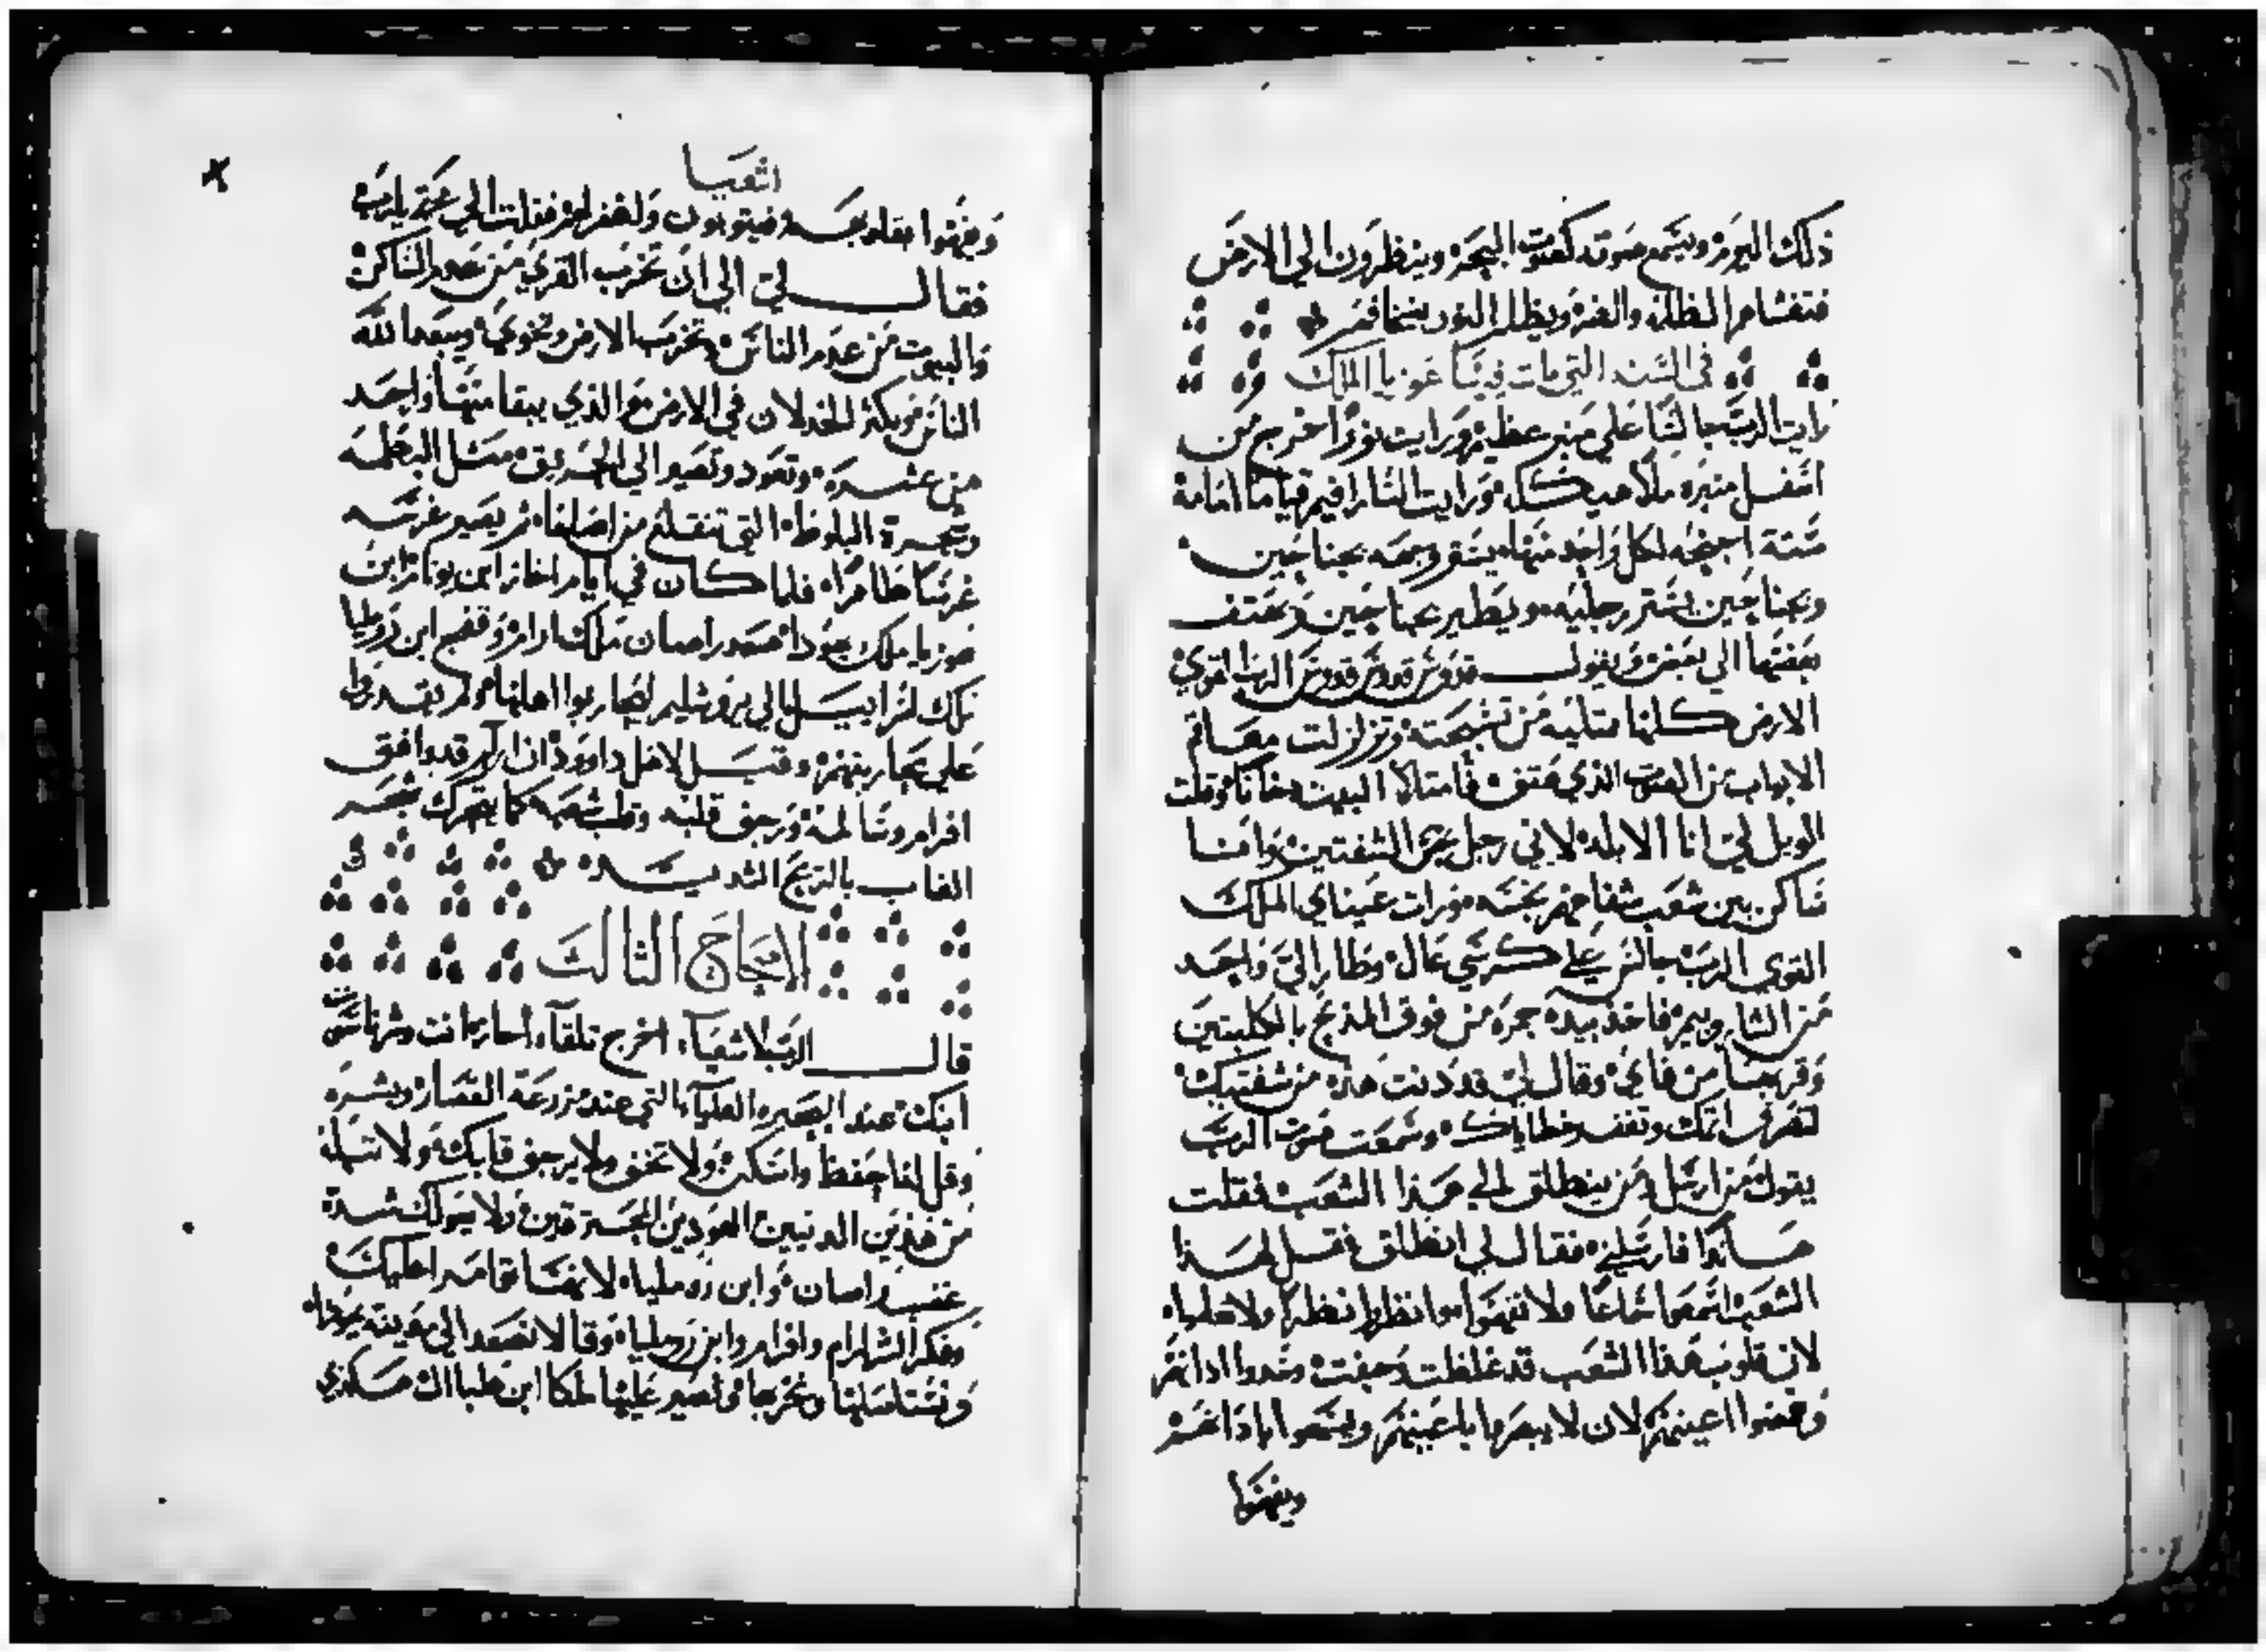 ذلك اليوم ويسمع صوته كصوت البحر وينظرون الي الارض
فتغشاهم الظلمه والضر ويظلم النور بينهما فمر
في السنه التي مات فيها عوزيا الملك
رايت الرب جالسا علي منبر عظيم ورايت نورا خرج من
اسفل منبره ملا هيكله ورايت السارافيم قياما امامه
ستة اجنحه لكل واحد منها يستر وجهه بجناحين
وبجناحين يستر رجليه ويطير بجناحين ويهتف
بعضها الي بعض ويقول قدوس قدوس قدوس الرب القوي
الارض كلها ممتليه من تسبحته وتزلزلت معاقم
الابواب من الصوت الذي هتف فامتلا البيت دخانا وقلت
الويل لي انا الابله لاني رجل نجس الشفتين وانا
ساكن بين شعب شفاههم نجسه ورات عيناي الملك
القوي الرب جالس علي كرسي عال وطار الي واحد
من السارافيم فاخذ بيده جمره من فوق المذبح بالكلبتين
وقربها من فاي وقال لي قد دنت هذه من شفتيك
لتصرف اثمك وتغفر خطاياك وسمعت صوت الرب
يقول من ارسل من ينطلق الي هذا الشعب فقلت
هانذا فارسلني فقال لي انطلق فقل لهذا
الشعب اسمعوا سماعا ولا تفهموا وانظروا نظرا ولا تعلموا
لان قلوب هذا الشعب قد غلظت وجفت وسدوا اذانهم
وغمضوا اعينهم لان لا يبصروا باعينهم ويسمعوا باذانهم
ويفهموا
اشعيا
ويفهموا بقلوبهم فيتوبون ولغفر لهم فقلت الي متي يارب
فقال لي الي ان تخرب القري من عدم الساكن
والبيوت من عدم الناس وتخرب الارض وتخوي ويبعد الله
الناس ويكثر الخذلان في الارض مع الذي يبقا منها واحد
من عشره وتعود وتصير الي الحريق مثل البطمه
وشجرة البلوط التي تنقلع من اصلها ثم يصير غرسه
غرسا طاهرا فلما كان في ايام احاز ابن يوثام ابن
عوزيا ملك يهودا صعد راصان ملك ارام وفقح ابن رومليا
ملك اسراييل الي يروشليم ليحاربوا اهلها ولم يقدروا
علي محاربتهم وقيل لاهل داوود ان ارام قد وافق
افرام وسالمه ورجف قلبه وقلب شعبه كما يتحرك شجر
الغاب بالريح الشديده
الاصحاح الثالث
قال الرب لاشعيا اخرج تلقاء احاز انت وشرياشوب
ابنك عند البحيره العليا التي عند مزرعة القصار ويسره
وقل له احفظ واسكن ولا تخف ولا يرجف قلبك ولا تباله
من هذين الدنبين العودين المحترقين ولا يهولك شدة
غضب راصان وابن روملياه لانهما تامرا عليك
وفكرا الشر ارام وافرام وابن روملياه وقالا نصعد الي مدينة يهوداه
ونستاصلها ونخربها ونصير عليها ملكا ابن طباال هكذي